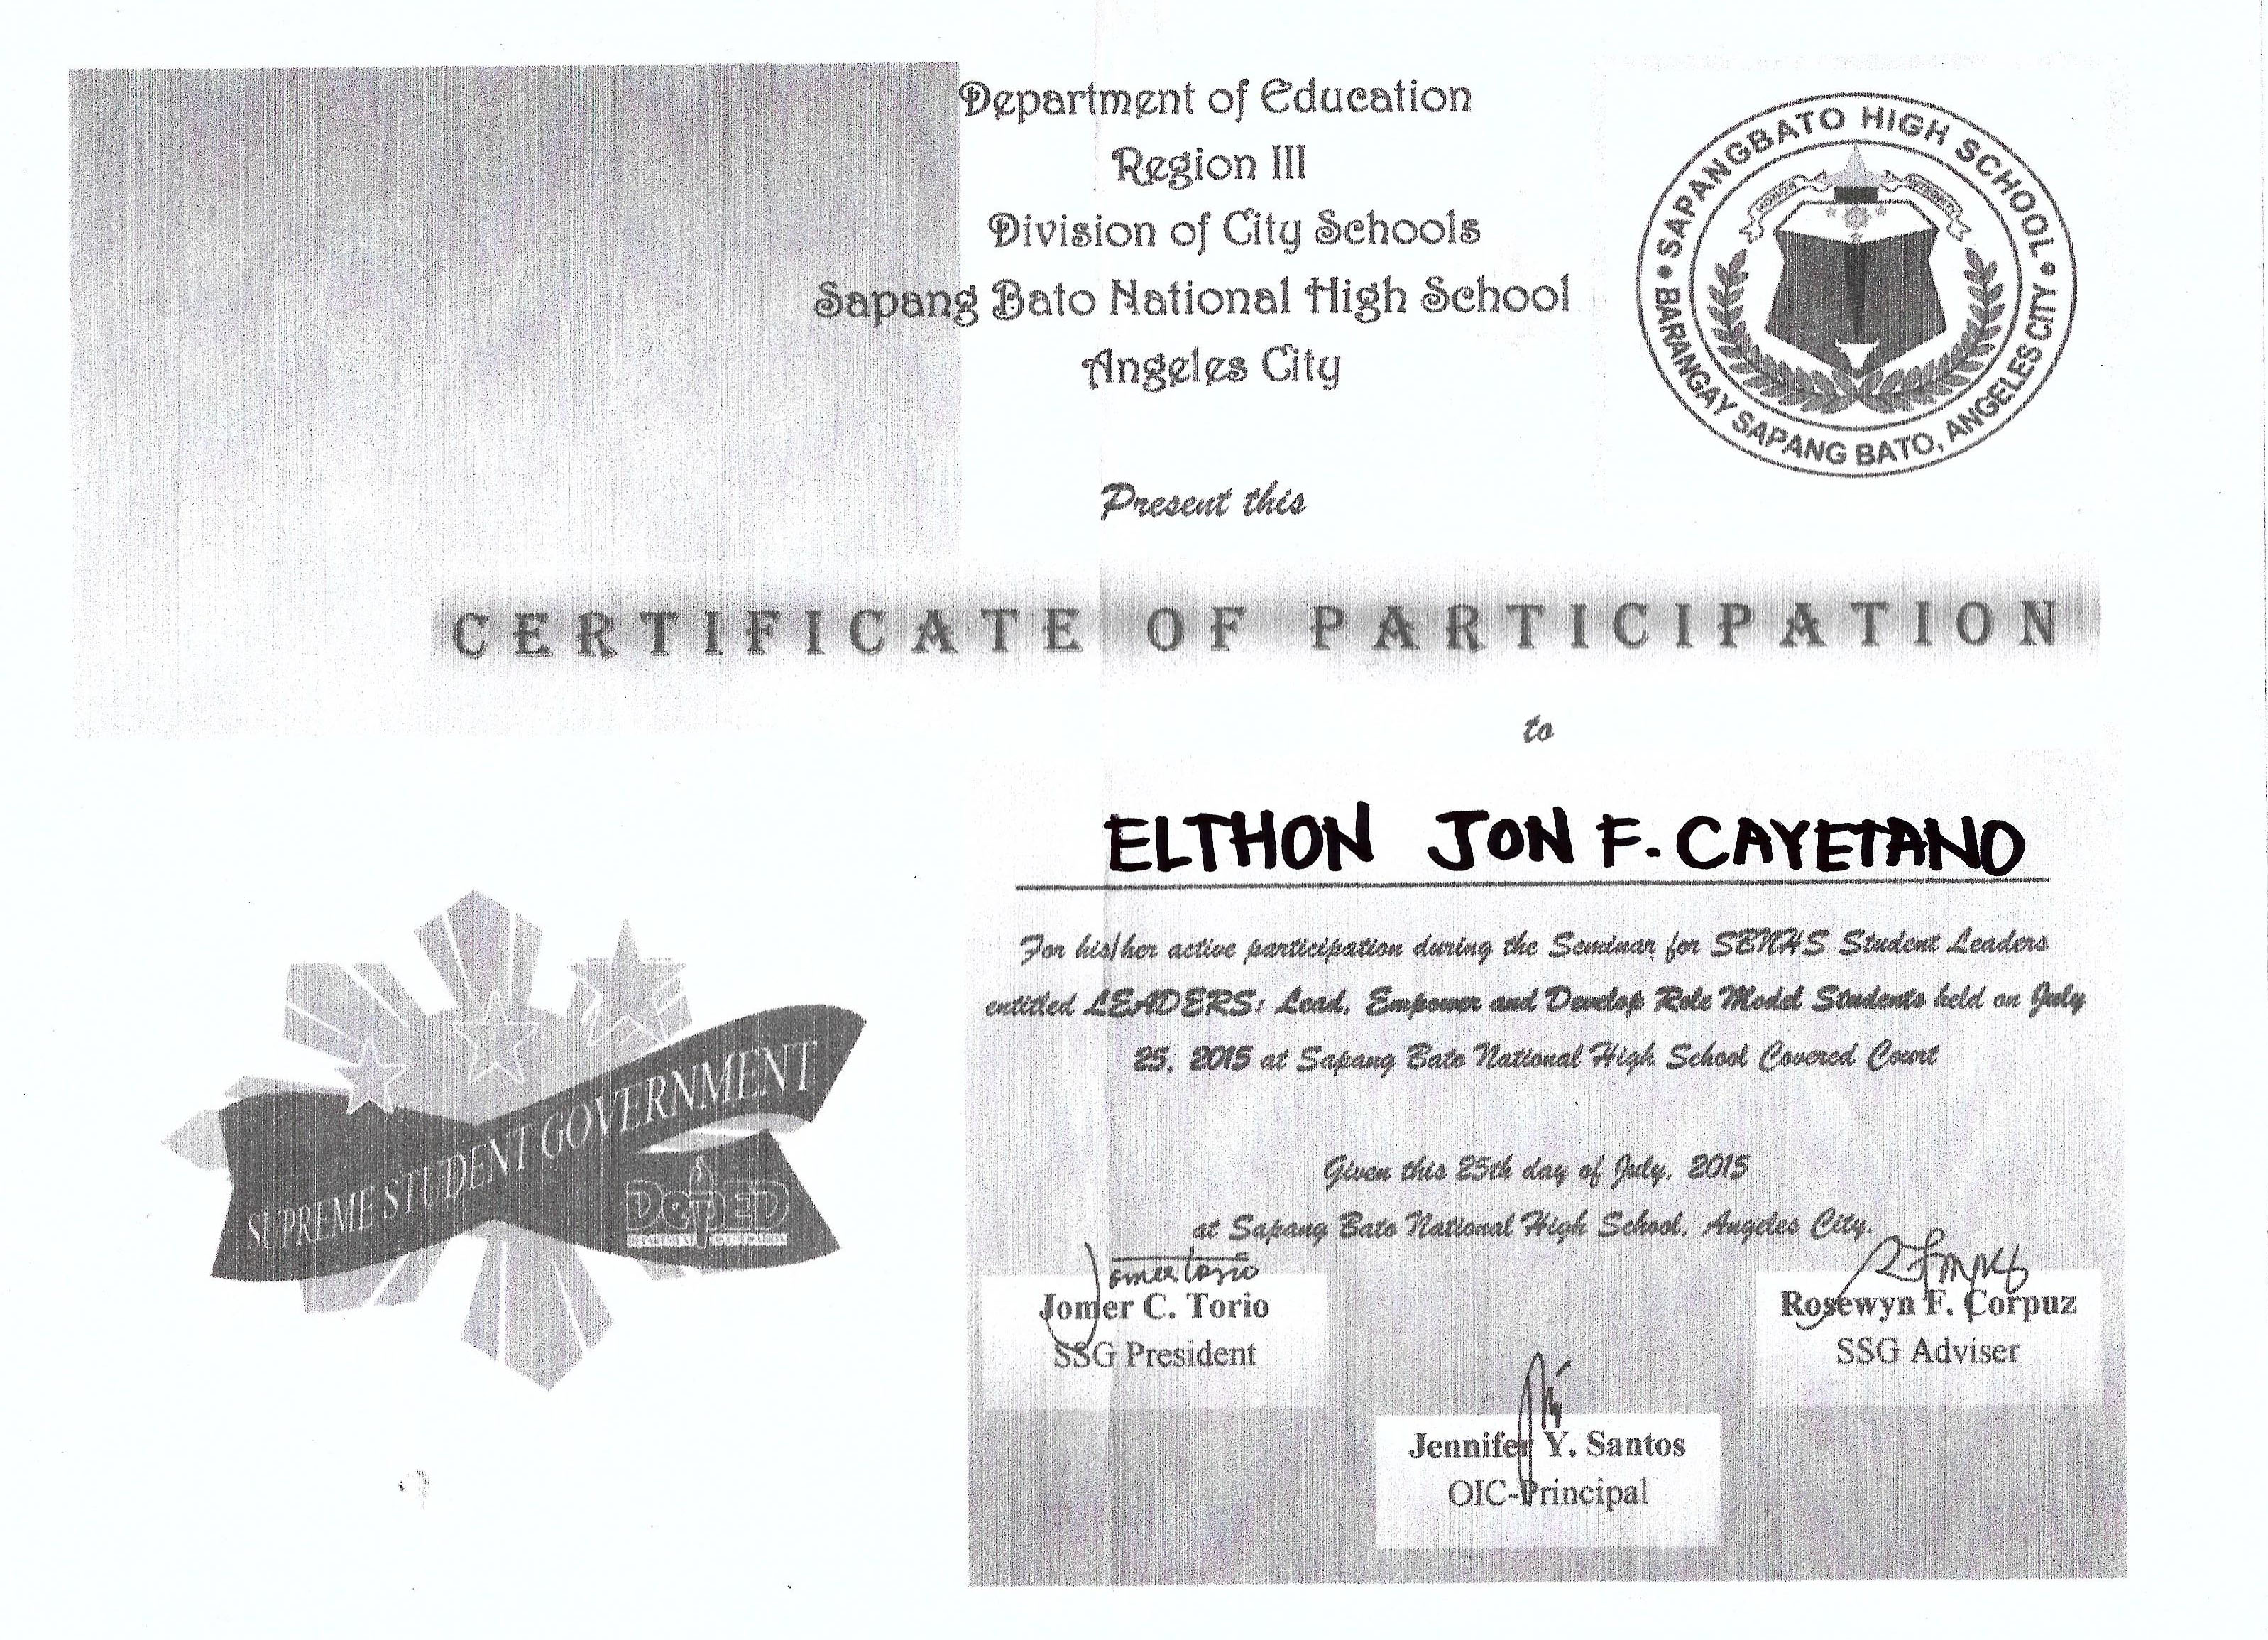 Department of Education
Region III
Division of City Schools
Sapang Bato National High School
Angeles City
• SAPANGBATO HIGH SCHOOL •
HONOR
INTEGRITY
BARANGAY SAPANG BATO, ANGELES CITY
Present this
CERTIFICATE OF PARTICIPATION
to
ELTHON JON F. CAYETANO
For his/her active participation during the Seminar for SBNHS Student Leaders
entitled LEADERS: Lead, Empower and Develop Role Model Students held on July
25, 2015 at Sapang Bato National High School Covered Court
SUPREME STUDENT GOVERNMENT
DepED
DEPARTMENT OF EDUCATION
Given this 25th day of July, 2015
at Sapang Bato National High School, Angeles City.
Jomer Torio
Jomer C. Torio
SSG President
Rosewyn F. Corpuz
SSG Adviser
Jennifer Y. Santos
OIC-Principal